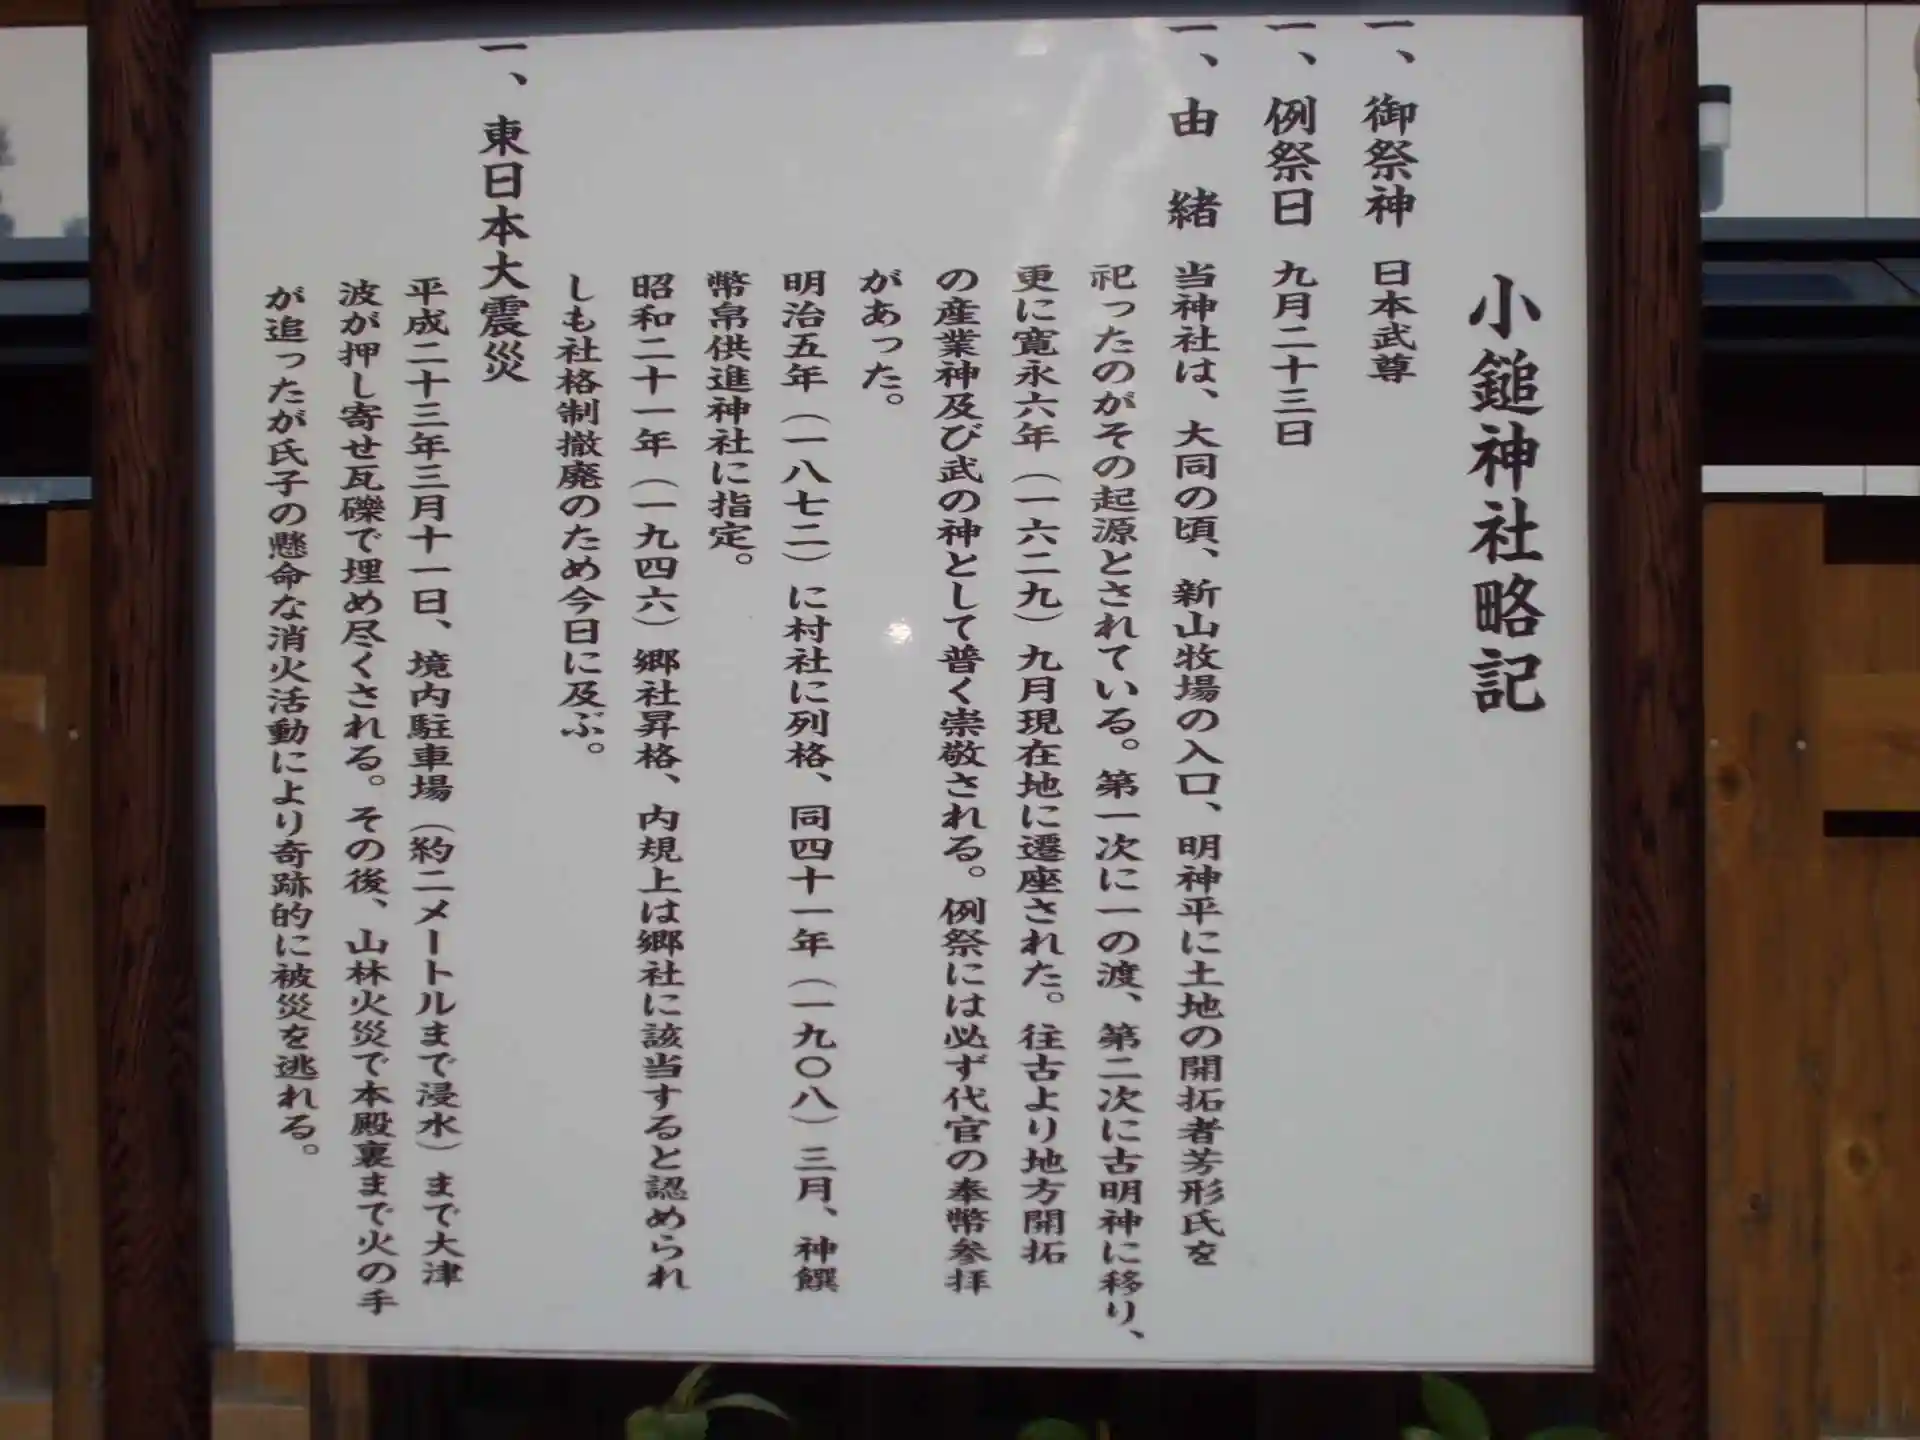 小鎚神社略記
一、御祭神 日本武尊
一、例祭日 九月二十三日
一、由 緒 当神社は、大同の頃、新山牧場の入口、明神平に土地の開拓者芳形氏を
祀ったのがその起源とされている。第一次に一の渡、第二次に古明神に移り、
更に寛永六年（一六二九）九月現在地に遷座された。往古より地方開拓
の産業神及び武の神として普く崇敬される。例祭には必ず代官の奉幣参拝
があった。
明治五年（一八七二）に村社に列格、同四十一年（一九〇八）三月、神饌
幣帛供進神社に指定。
昭和二十一年（一九四六）郷社昇格、内規上は郷社に該当すると認められ
しも社格制撤廃のため今日に及ぶ。
一、東日本大震災
平成二十三年三月十一日、境内駐車場（約二メートルまで浸水）まで大津
波が押し寄せ瓦礫で埋め尽くされる。その後、山林火災で本殿裏まで火の手
が追ったが氏子の懸命な消火活動により奇跡的に被災を逃れる。